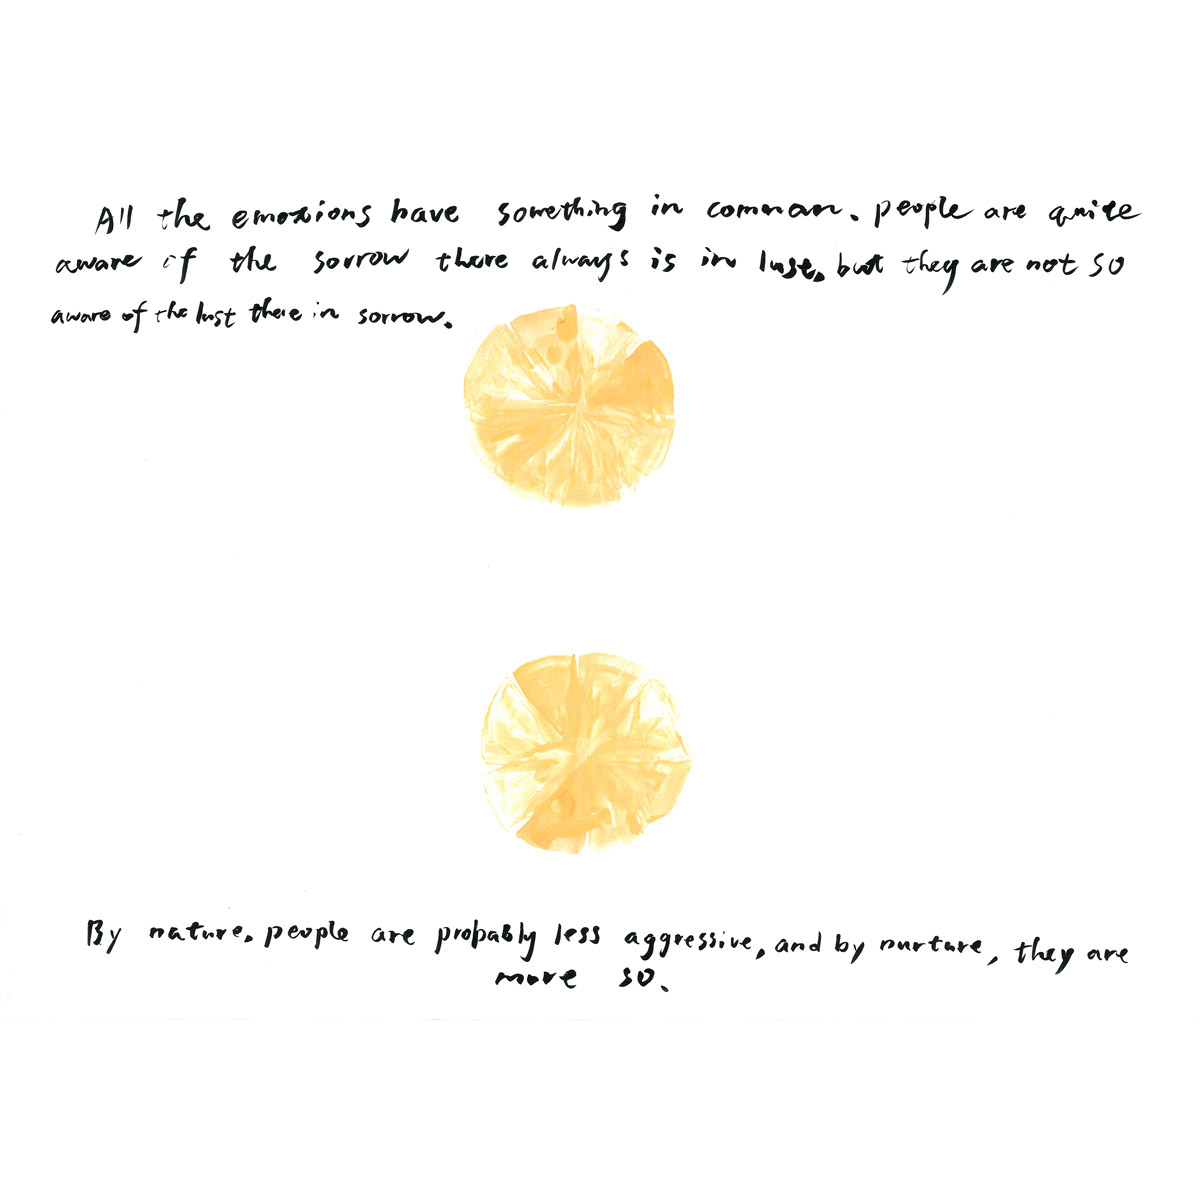 All the emotions have something in common. people are quite
aware of the sorrow there always is in lust, but they are not so
aware of the lust there in sorrow.
By nature, people are probably less aggressive, and by nurture, they are
more so.